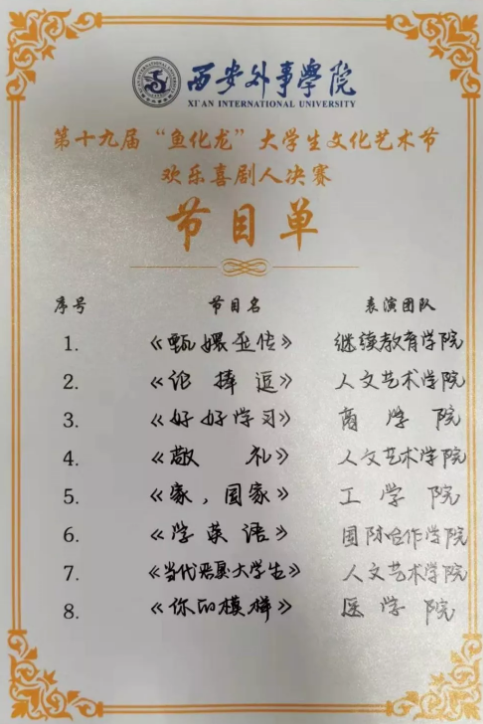 西安外事学院
XI'AN INTERNATIONAL UNIVERSITY
第十九届“鱼化龙”大学生文化艺术节
欢乐喜剧人决赛
节目单
序号 节目名 表演团队
1. 《甄嬛歪传》 继续教育学院
2. 《论捧逗》 人文艺术学院
3. 《好好学习》 商学院
4. 《敬礼》 人文艺术学院
5. 《家,国家》 工学院
6. 《学英语》 国际合作学院
7. 《当代恶臭大学生》 人文艺术学院
8. 《你的模样》 医学院